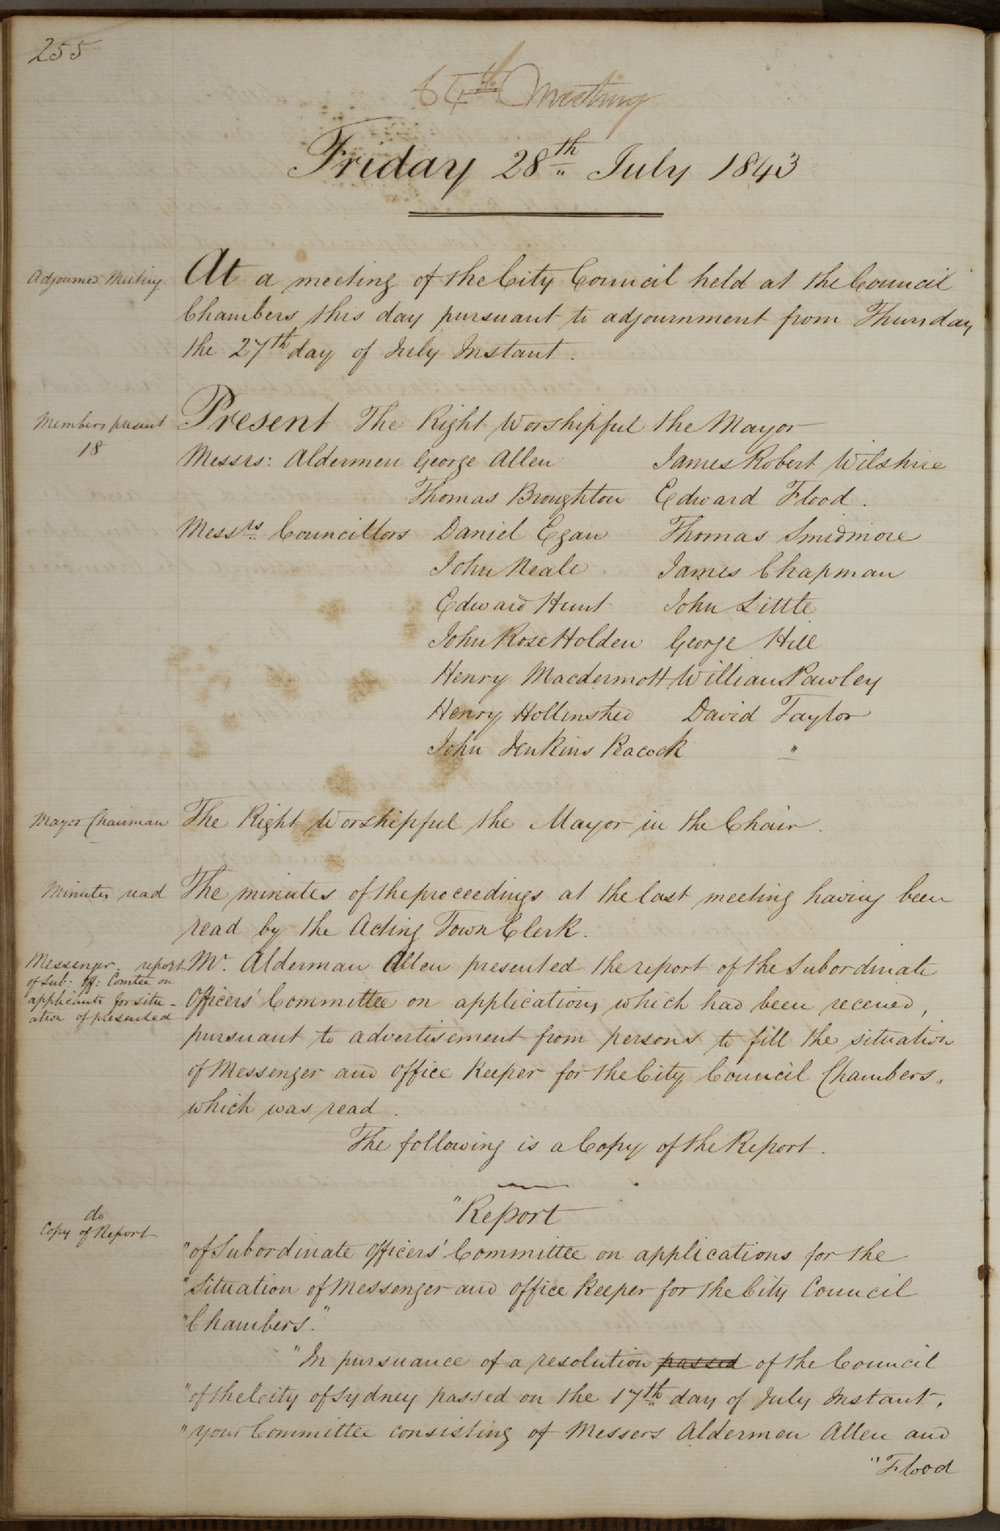 255
64th Meeting
Friday 28th July 1843
Adjourned Meeting
At a meeting of the City Council held at the Council
Chambers this day pursuant to adjournment from Thursday
the 27th day of July Instant.
Members present
18
Present The Right Worshipful the Mayor
Messrs: Aldermen George Allen James Robert Wilshire
Thomas Broughton Edward Flood.
Messrs Councillors Daniel Egan Thomas Smidmore
John Neale James Chapman
Edward Hunt John Little
John Rose Holden George Hill
Henry Macdermott William Pawley
Henry Hollinshed David Taylor
John Jenkins Peacock "
Mayor Chairman
The Right Worshipful the Mayor in the Chair.
Minutes read
The minutes of the proceedings at the last meeting having been
read by the Acting Town Clerk.
Messenger, report
of Sub: Off: Comtee on
applicants for situ-
ation of presented
Mr. Alderman Allen presented the report of the Subordinate
Officers' Committee on applications, which had been received,
pursuant to advertisement from persons to fill the situation
of Messenger and Office Keeper for the City Council Chambers,
which was read.
The following is a Copy of the Report.
do
Copy of Report
"Report
"of Subordinate Officers' Committee on applications for the
"Situation of Messenger and Office Keeper for the City Council
"Chambers."
"In pursuance of a resolution passed of the Council
"of the City of Sydney passed on the 17th day of July Instant,
"Your Committee consisting of Messers Aldermen Allen and
"Flood